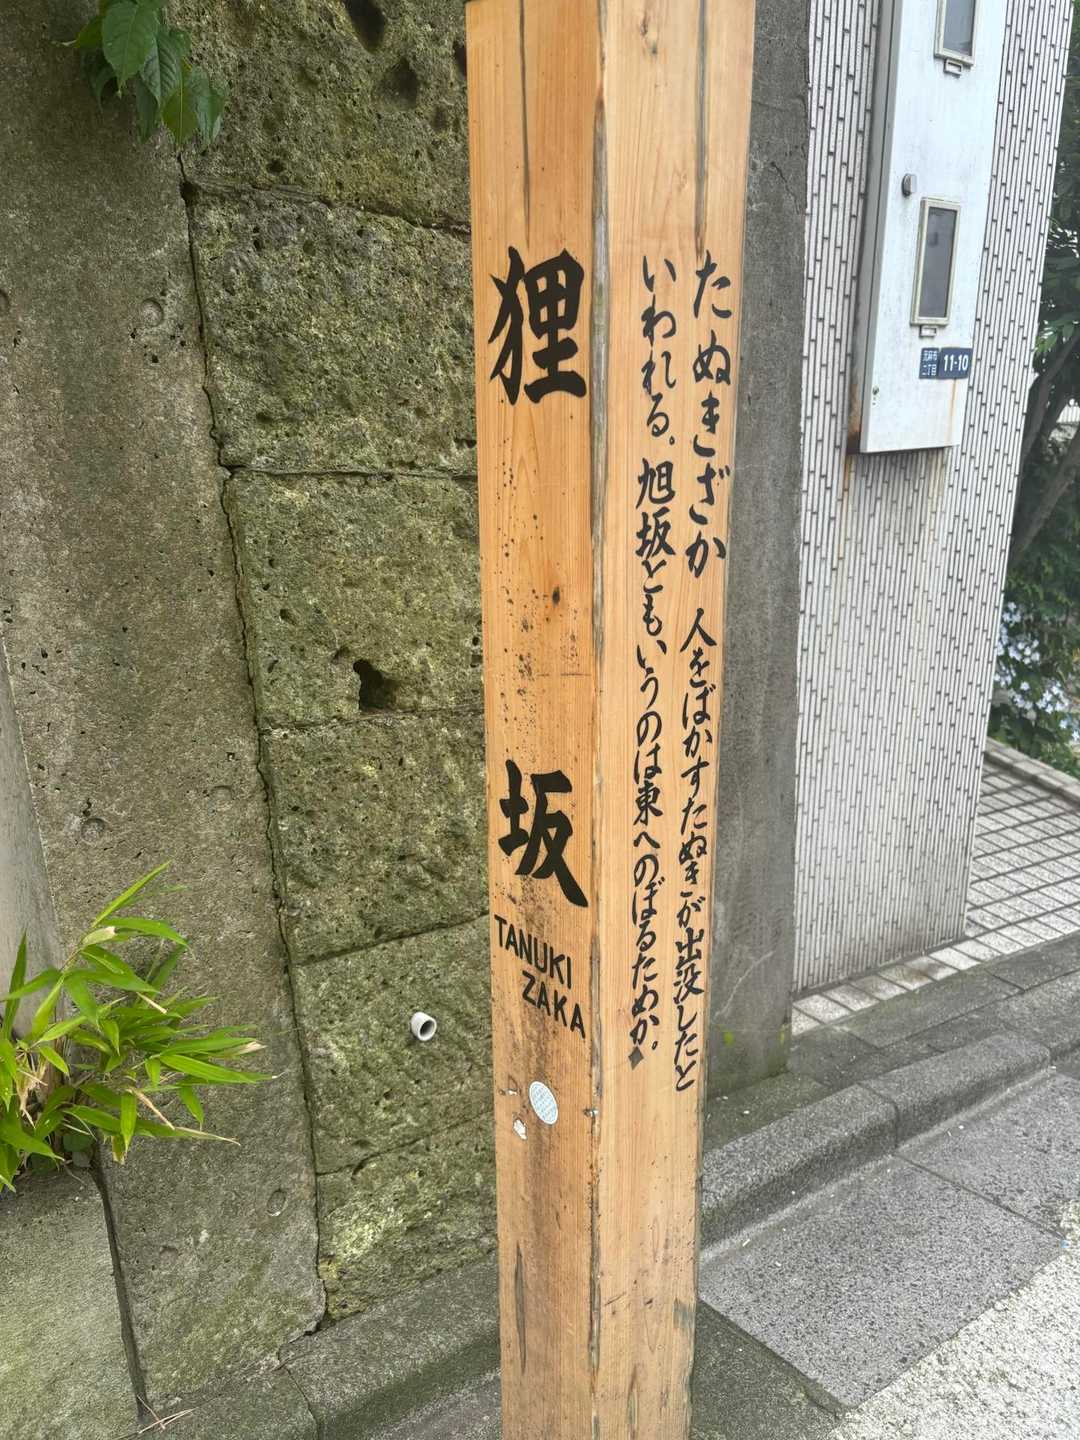 狸坂
TANUKI
ZAKA
たぬきざか 人をばかすたぬきが出没したと
いわれる。旭坂ともいうのは東へのぼるためか。
元麻布
二丁目
11-10